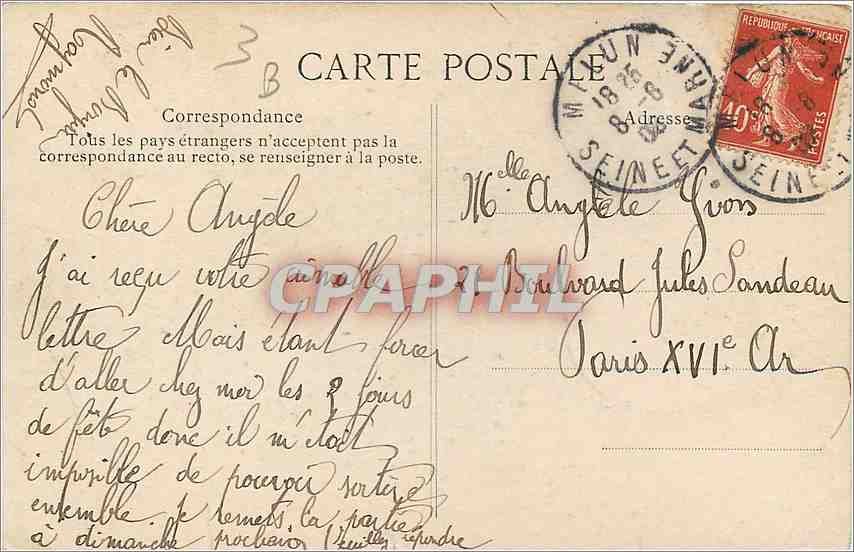 bien le bonjour
Raymond
B
CARTE POSTALE
Correspondance
Tous les pays étrangers n'acceptent pas la
correspondance au recto, se renseigner à la poste.
Adresse
MELUN
18 25
8 -6
SEINE ET MARNE
REPUBLIQUE FRANÇAISE
10c
POSTES
MELUN
SEINE ET
Chère Angèle
J'ai reçu votre aimable
lettre Mais étant forcer
d'aller chez moi les 2 jours
de fête donc il m'etait
imposible de pouvoir sortire
ensemble. je remets la partie
à dimanche prochain Veuillez repondre
Melle Angèle Yvon
2 Boulvard Jules Sandeau
Paris XVIe Ar
CPAPHIL